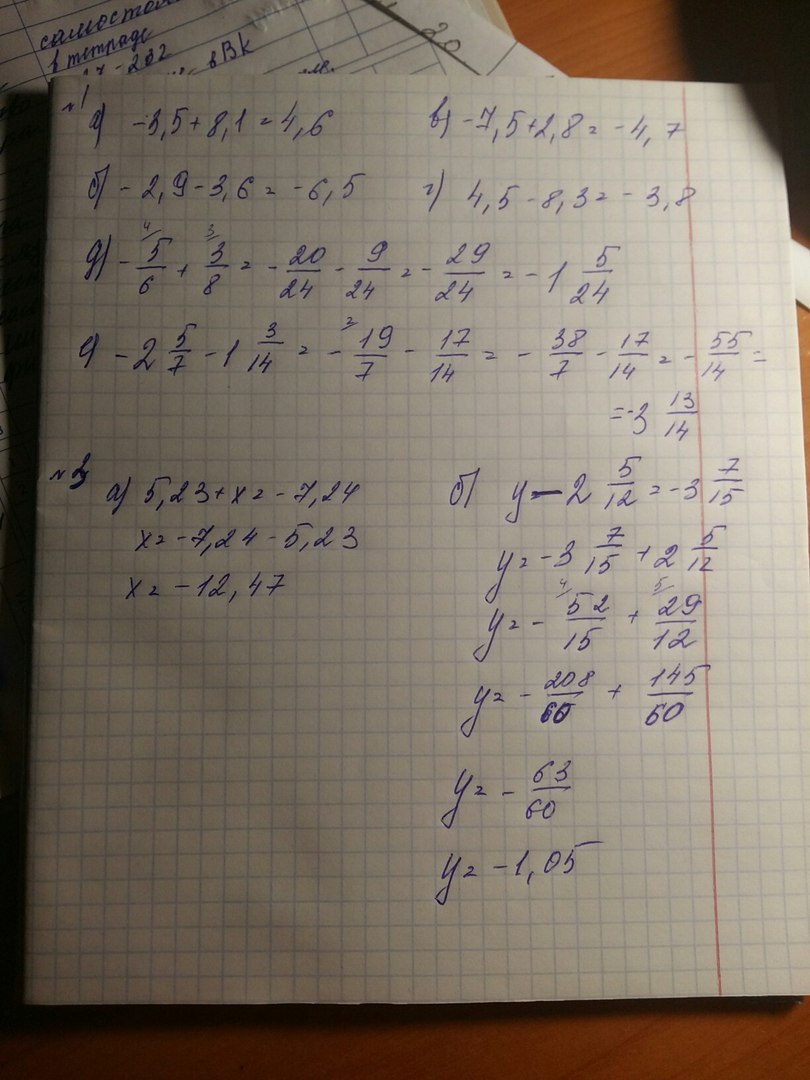 самостоя
в тетраде
202 в Вк
20
№1
а) -3,5+8,1=4,6 в) -7,5+2,8=-4,7
б) -2,9-3,6=-6,5 г) 4,5-8,3=-3,8
д) -5/6 + 3/8 = -20/24 - 9/24 = -29/24 = -1 5/24
е) -2 5/7 - 1 3/14 = -19/7 - 17/14 = -38/7 - 17/14 = -55/14 =
=-3 13/14
№2
а) 5,23+x=-7,24
x=-7,24-5,23
x=-12,47
б) y-2 5/12=-3 7/15
y=-3 7/15+2 5/12
y=-52/15+29/12
y=-208/60+145/60
y=-63/60
y=-1,05